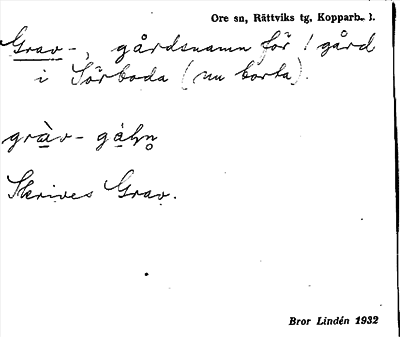 Ore sn, Rättviks tg, Kopparb. l.
Grav-, gårdsnamn för 1 gård
i Sörboda (nu borta).
gràv- gáhn̥
Skrives Grav.
Bror Lindén 1932